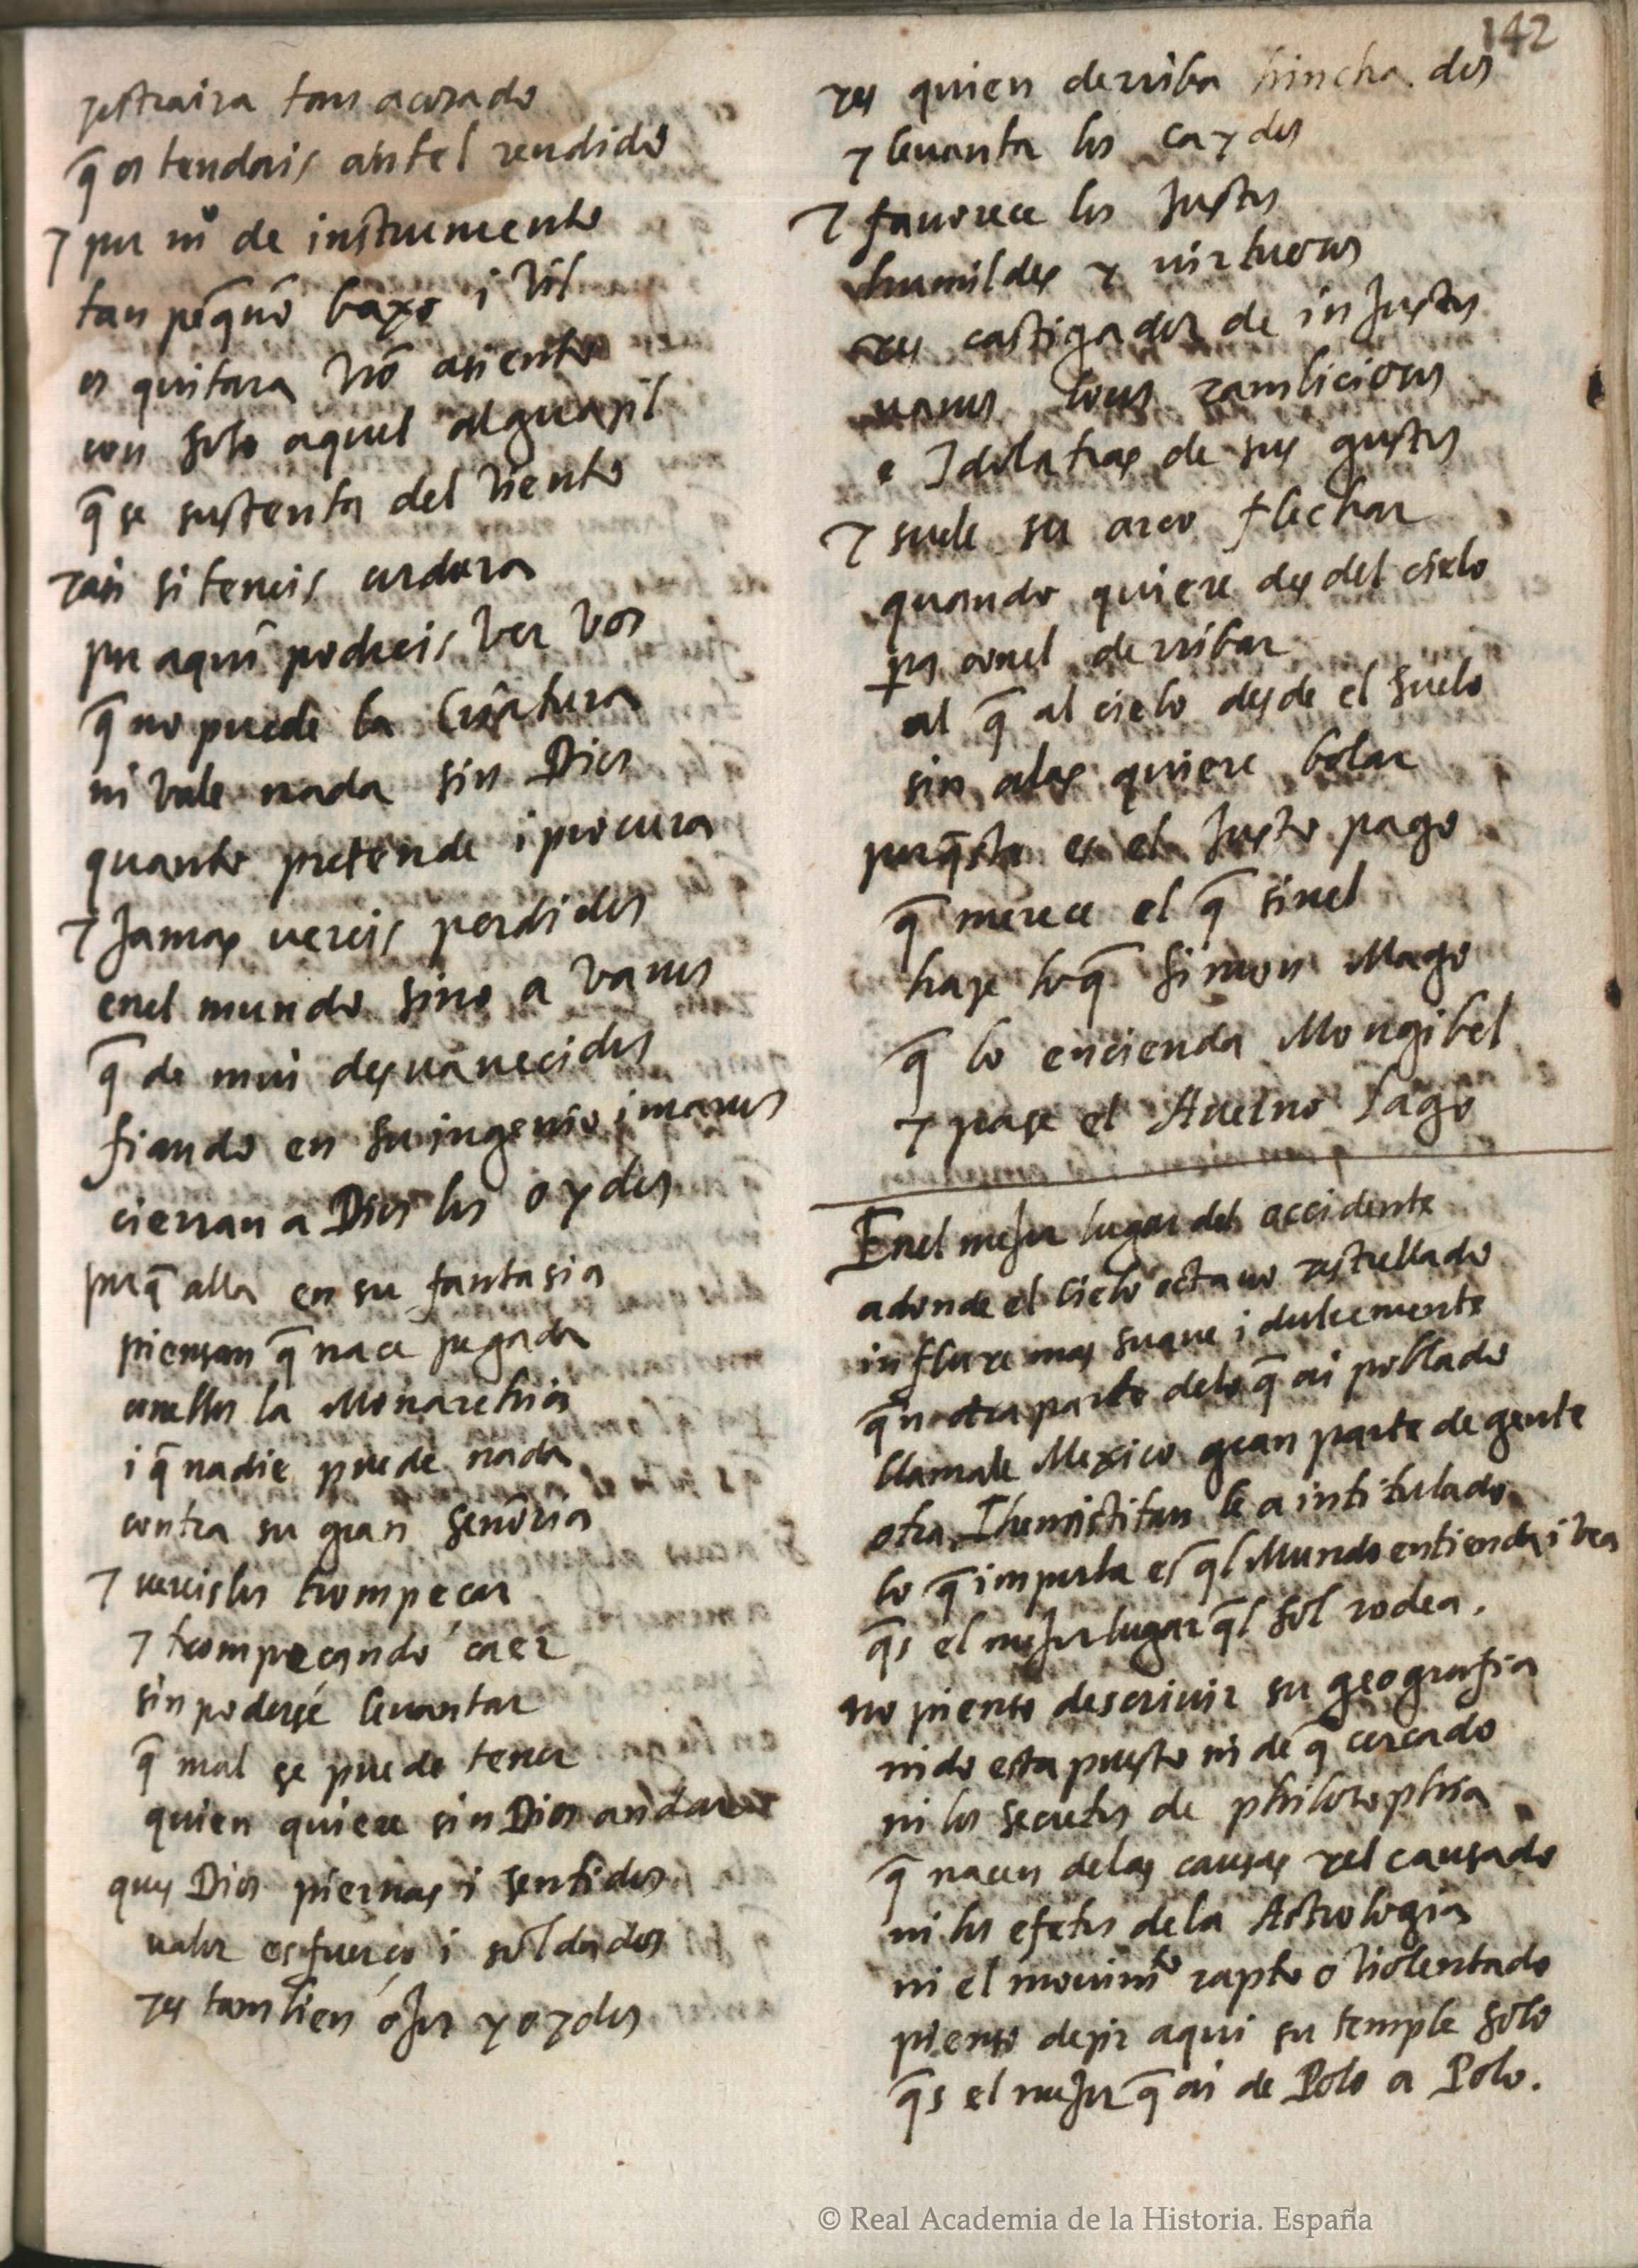 142
yestraira tan acosado
q̄ os tendais antel rendido
y por mº de instrumento
tan peq̄ño baxo i vil
os quitara vrō asiento
con solo aquel alguaçil
q̄ se sustenta del viento
yasi si teneis cordura
por aqui podreis ver vos
q̄ no puede la criatura
ni vale nada sin Dios
quanto pretende i procura
y Jamas vereis perdidos
enel mundo sino a vanos
q̄ de mui desvanecidos
fiando en su ingenio i manos
cierran a Dios los oydos
porq̄ alla en su fantasia
piensan q̄ nace pegada
conellos la Monarchia
i q̄ nadie puede nada
contra su gran señoria
y vereislos trompeçar
y trompeçando caer
sin poderse levantar
q̄ mal se puede tener
quien quiere sin Dios andar
ques Dios piernas i sentidos
valor esfuerço i soldados
yes tambien oJos y oydos
yes quien derriba hinchados
y levanta los caydos
y favorece los Justos
humildes y virtuosos
yes castigador de inJustos
vanos locos yambiciosos
e Idolatras de sus gustos
y suele su arco flechar
quando quiere desdel cielo
pa conel derribar
al q̄ al cielo desde el suelo
sin alas quiere bolar
porq̄sta es el Justo pago
q̄ merece el q̄ sinel
haze loq̄ Simon Mago
q̄ lo encienda Mongibel
y pase el Averno lago
Enel meJor lugar del occidente
adonde el cielo octavo yestrellado
influye mas suave i dulcemente
q̄n otra parte delo q̄ ai poblado
llamale Mexico gran parte de gente
otra Thenustitan le a intitulado
lo q̄ importa es q̄l Mundo entienda i vea
q̄s el meJor lugar q̄l sol rodea.
no pienso descrivir su geografia
ni do esta puesto ni de q̄ cercado
ni los secretos de philosophia
q̄ nacen delas causas yel causado
ni los efetos dela Astrologia
ni el movimto rapto o violentado
pienso dezir aqui su temple solo
q̄s el meJor q̄ ai de Polo a Polo.
© Real Academia de la Historia. España